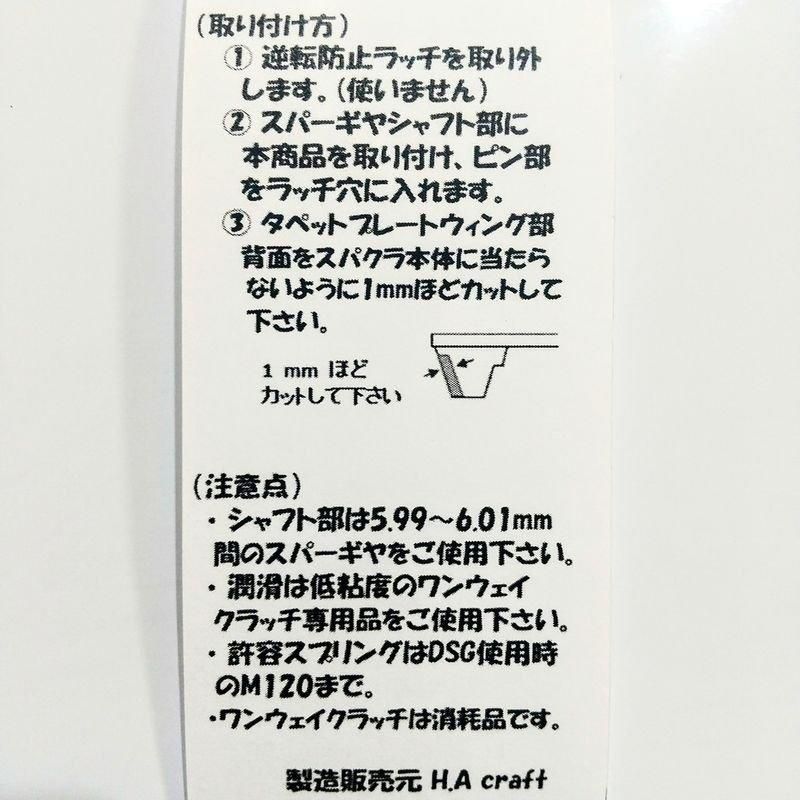 (取り付け方)
① 逆転防止ラッチを取り外
します。(使いません)
② スパーギヤシャフト部に
本商品を取り付け、ピン部
をラッチ穴に入れます。
③ タペットプレートウィング部
背面をスパクラ本体に当たら
ないように1mmほどカットして
下さい。
1 mm ほど
カットして下さい
(注意点)
・シャフト部は5.99～6.01mm
間のスパーギヤをご使用下さい。
・潤滑は低粘度のワンウェイ
クラッチ専用品をご使用下さい。
・許容スプリングはDSG使用時
のM120まで。
・ワンウェイクラッチは消耗品です。
製造販売元 H.A craft